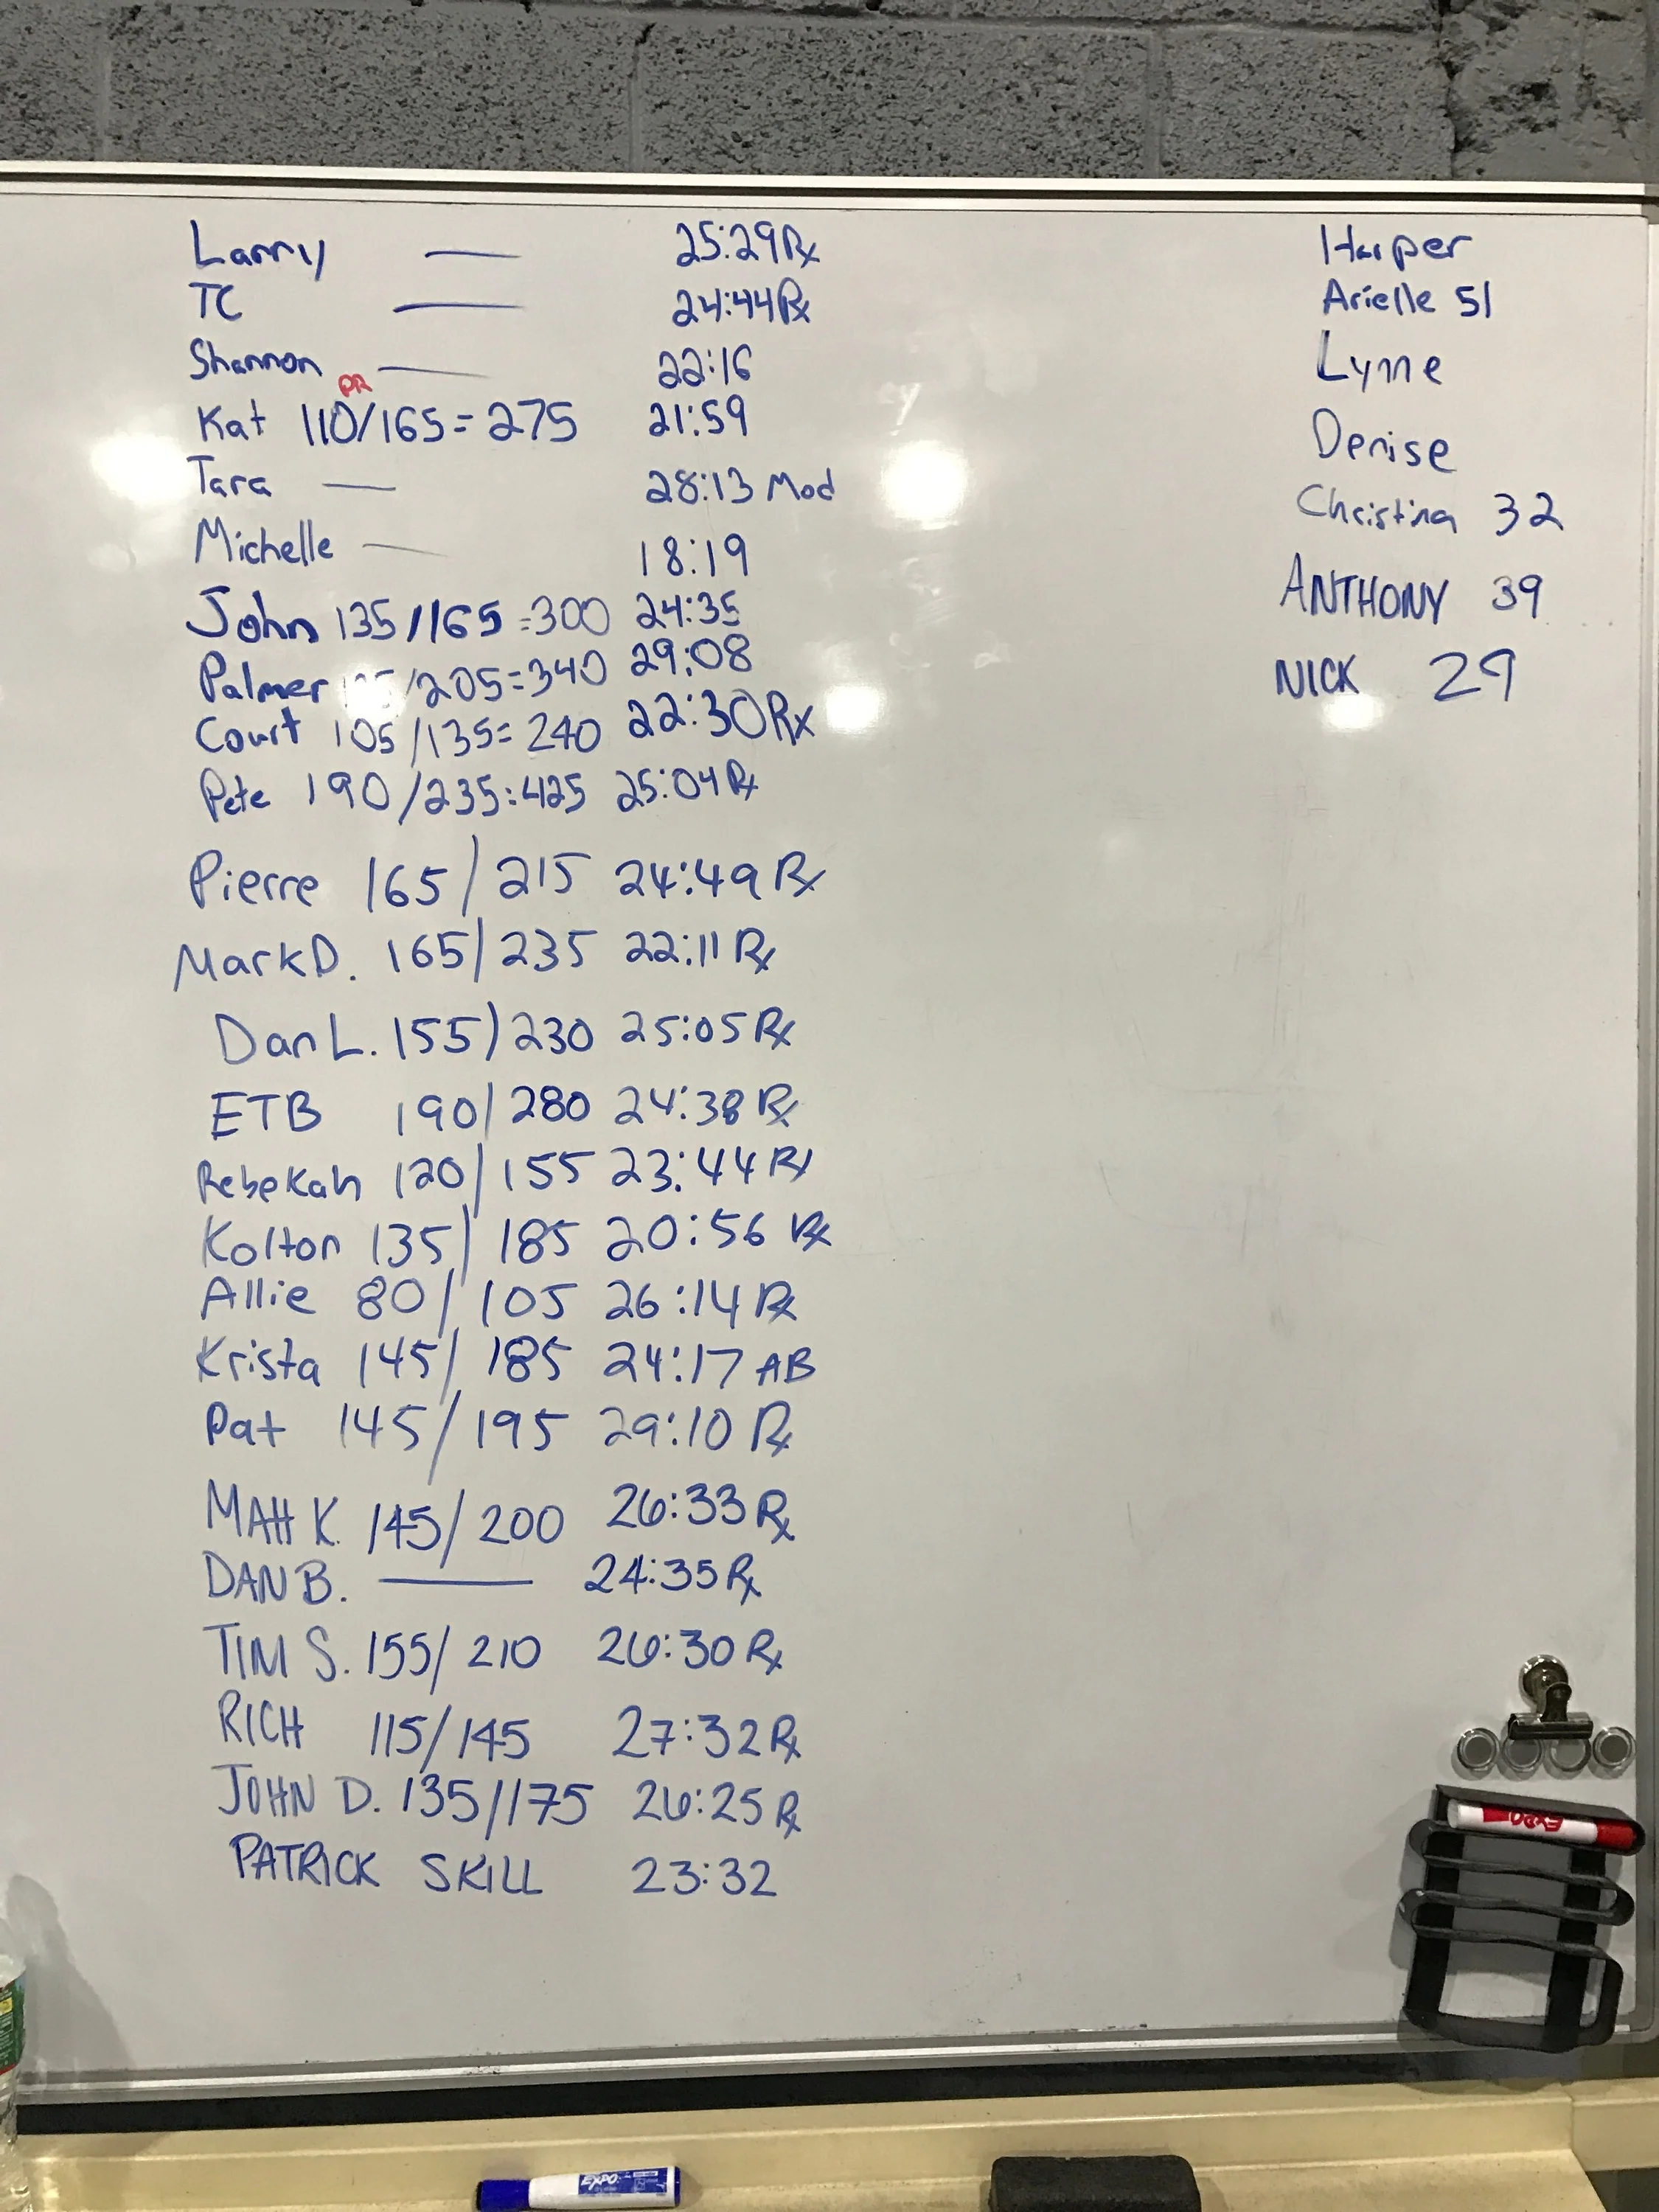 Larry — 25:29 Rx
TC — 24:44 Rx
Shannon — 22:16
PR
Kat 110/165 = 275 21:59
Tara — 28:13 Mod
Michelle — 18:19
John 135/165 = 300 24:35
Palmer /205 = 340 29:08
Court 105/135 = 240 22:30 Rx
Pete 190/235 = 425 25:04 Rx
Pierre 165/215 24:49 Rx
Mark D. 165/235 22:11 Rx
Dan L. 155/230 25:05 Rx
ETB 190/280 24:38 Rx
Rebekah 120/155 23:44 Rx
Kolton 135/185 20:56 Rx
Allie 80/105 26:14 Rx
Krista 145/185 24:17 AB
Pat 145/195 29:10 Rx
MAtt K. 145/200 26:33 Rx
DAN B. — 24:35 Rx
TIM S. 155/210 26:30 Rx
RICH 115/145 27:32 Rx
JOHN D. 135/175 26:25 Rx
PATRICK SKILL 23:32
Harper
Arielle 51
Lynne
Denise
Christina 32
ANTHONY 39
NICK 29
EXPO
EXPO